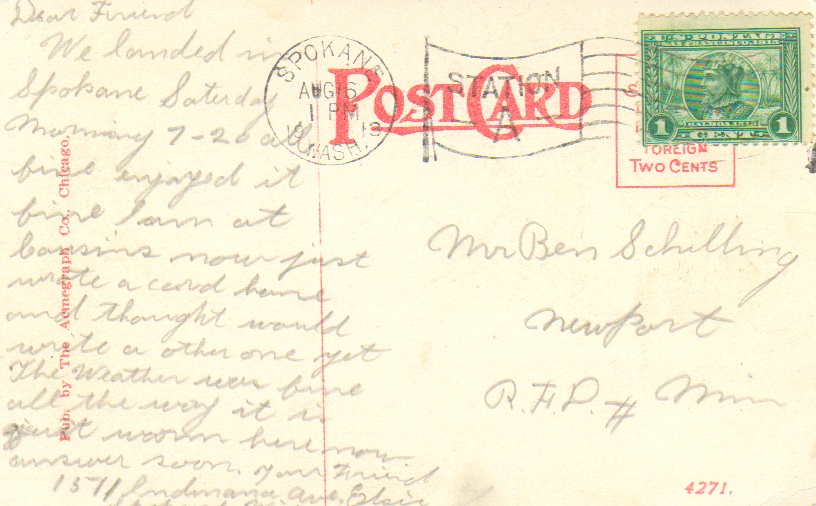 Dear Friend
We landed in
Spokane Saterday
Morning 7-20 a
fine enjoyed it
fine I am at
Cousins now just
wrote a card home
and thought would
write a other one yet
The Weather was fine
all the way it is
just worm here now
answer soon. your Friend
1511 Indiana Ave. Elsie
Pub. by The Acmegraph Co., Chicago.
SPOKANE
AUG 16
1 PM
WASH.
STATION
A
POST CARD
U.S. POSTAGE
SAN FRANCISCO 1915
BALBOA 1513
1 CENT 1
FOREIGN
TWO CENTS
Mr Ben Schilling
Newport
R.F.D. # Minn
4271.